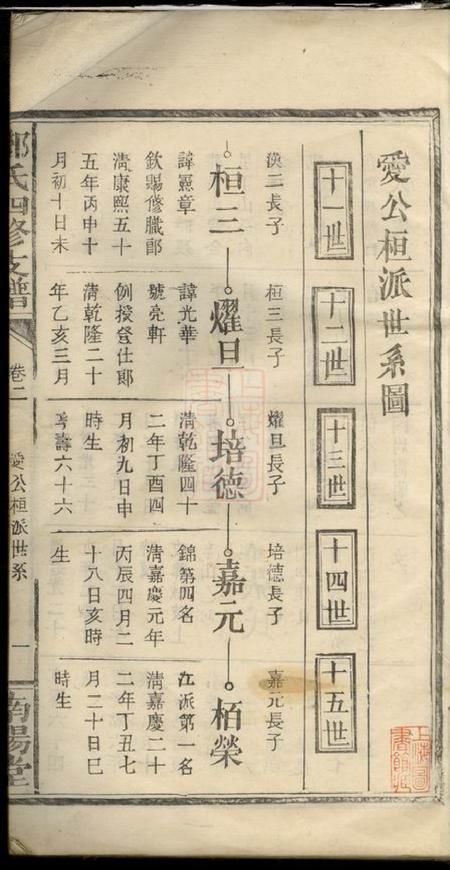 愛公桓派世系圖
十一世
十二世
十三世
十四世
十五世
渶三長子
桓三長子
燿旦長子
培德長子
嘉元長子
桓三
燿旦
培德
嘉元
栢榮
諱憲章
欽賜修職郎
清康熙五十
五年丙申十
月初十日未
諱光華
號亮軒
例授登仕郎
清乾隆二十
年乙亥三月
清乾隆四十
二年丁酉四
月初九日申
時生
壽六十六
錦第四名
清嘉慶元年
丙辰四月二
十八日亥時
生
派第一名
清嘉慶二十
二年丁丑七
月二十日巳
時生
氏四修支譜
卷二
愛公桓派世系
一
南陽堂
上海圖書館藏